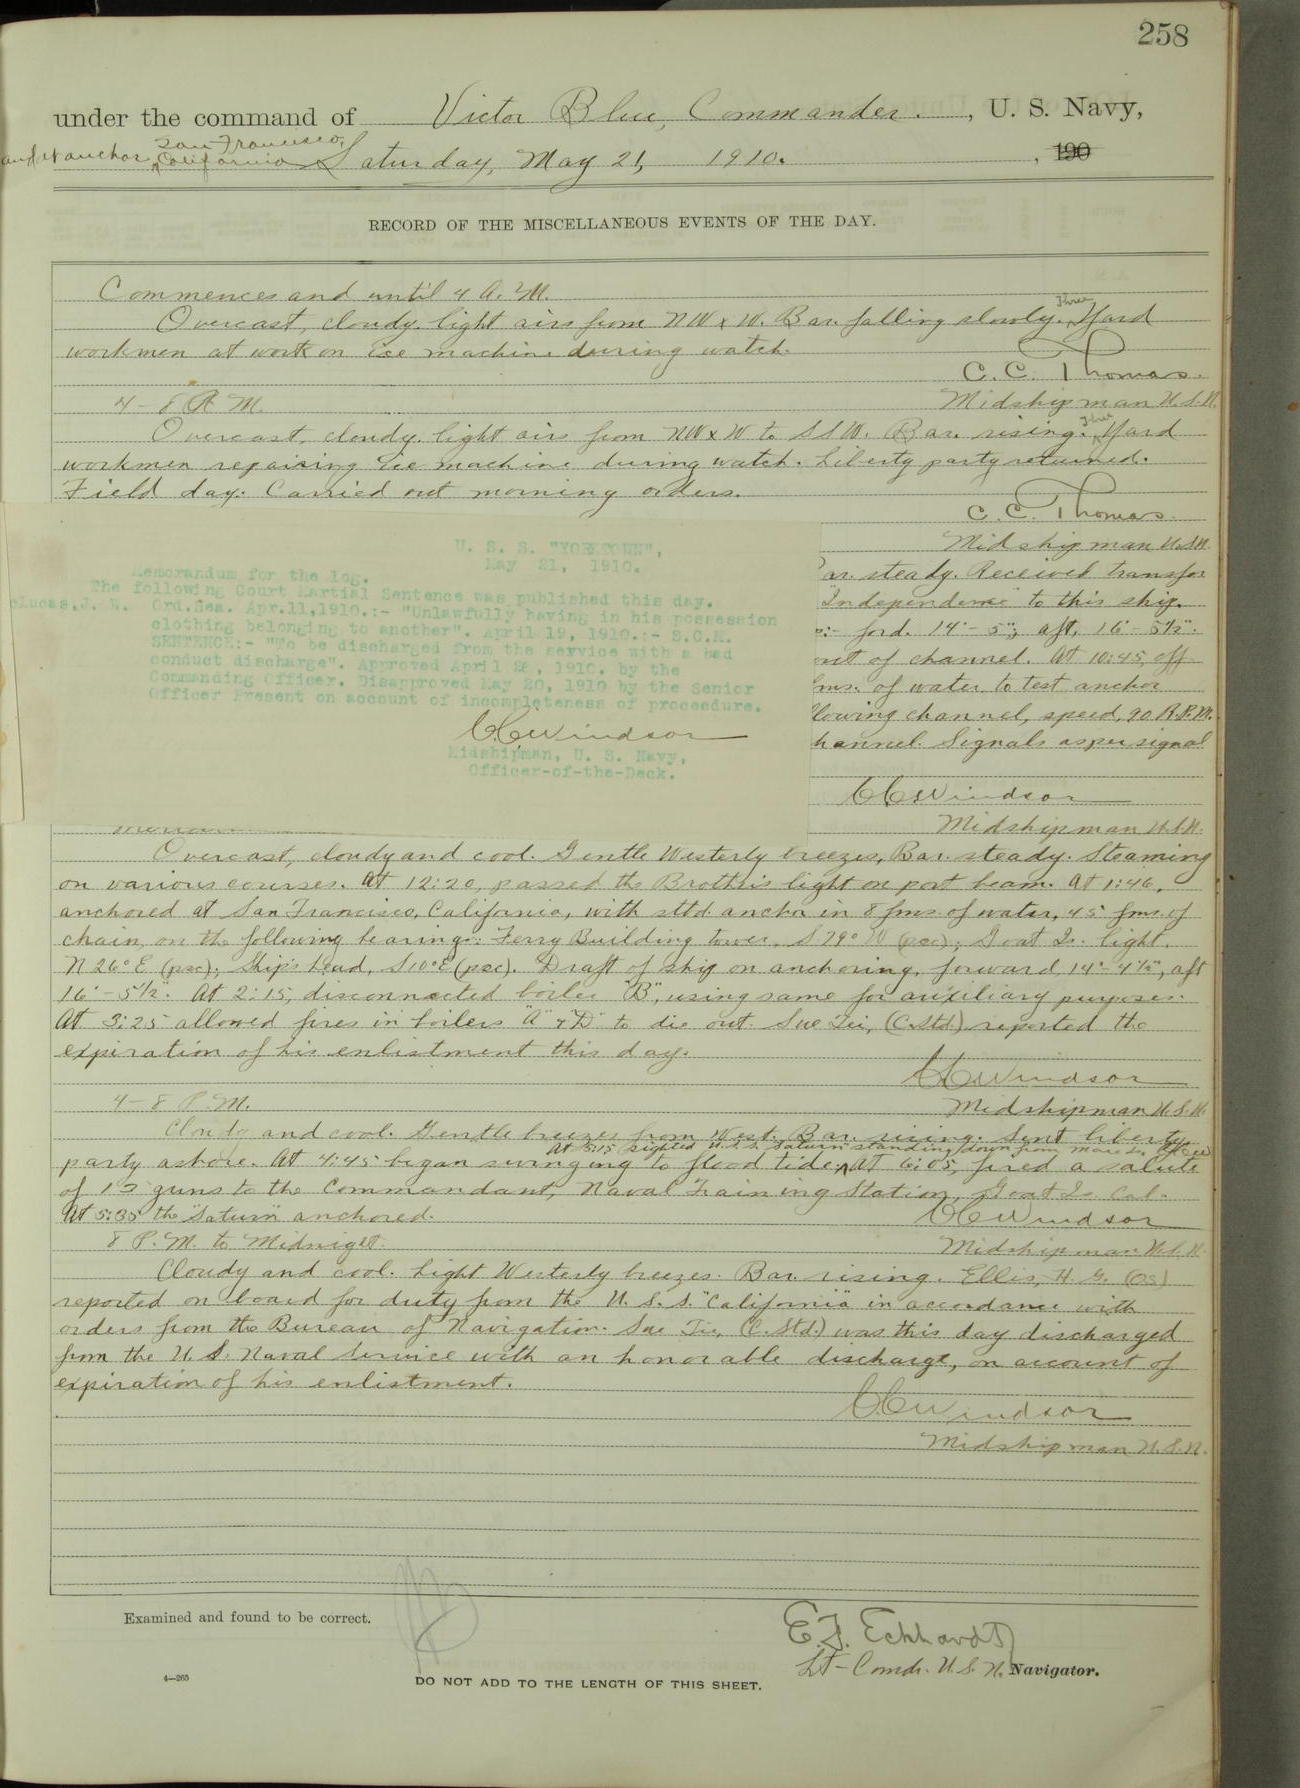 258
under the command of Victor Blue, Commander. , U. S. Navy,
and at anchor, San Francisco, California Saturday, May 21, 1910. , 190
RECORD OF THE MISCELLANEOUS EVENTS OF THE DAY.
Commences and until 4 A.M.
Overcast, cloudy. light airs from NW x W. Bar. falling slowly. Three Yard
workmen at work on ice machine during watch.
C. C. Thomas.
4 – 8 A.M. Midshipman U.S.N.
Overcast, cloudy. light airs from NW x W to SSW. Bar. rising. Three Yard
workmen repairing ice machine during watch. Liberty party returned.
Field day. Carried out morning orders.
C. C. Thomas.
Midshipman U.S.N.
U. S. S. "YORKTOWN",
May 21, 1910.
Memorandum for the log.
The following Court Martial Sentence was published this day.
Lucas, J. W. Ord.Sea. Apr.11,1910.:- "Unlawfully having in his possession
clothing belonging to another". April 19, 1910.:- S.C.M.
SENTENCE:- "To be discharged from the service with a bad
conduct discharge". Approved April 26, 1910. by the
Commanding Officer. Disapproved May 20, 1910 by the Senior
Officer Present on account of incompleteness of proceedure.
C.C. Windsor
Midshipman, U. S. Navy,
Officer-of-the-Deck.
Bar. steady. Received transfer
"Independence" to this ship.
ford. 14'–5"; aft, 16'–5½".
out of channel. At 10:45, off
fms. of water to test anchor
llowing channel, speed, 90 R.P.M.
hannel. Signals as per signal
C.C. Windsor
Midshipman U.S.N.
Overcast, cloudy and cool. Gentle Westerly breezes, Bar. steady. Steaming
on various courses. At 12:20, passed the Brothers light on port beam. At 1:46,
anchored at San Francisco, California, with stbd. anchor in 8 fms. of water, 45 fms. of
chain, on the following bearings: Ferry Building tower, S 79° W (psc); Goat Is. light,
N 26° E (psc); Ship's head, S 10° E (psc). Draft of ship on anchoring, forward, 14'–4½", aft
16'–5½". At 2:15, disconnected boiler "B", using same for auxiliary purposes.
At 3:25 allowed fires in boilers "A" & "D" to die out. Sue Tie, (C.Std.) reported the
expiration of his enlistment this day.
C.C. Windsor
4 – 8 P.M. Midshipman U.S.N.
Cloudy and cool. Gentle breezes from West. Bar. rising. Sent liberty
At 5:15 sighted U.S.S. "Saturn" standing down from Mare Is.
party ashore. At 4:45 began swinging to flood tide. At 6:05, fired a salute
of 13 guns to the Commandant, Naval Training Station, Goat Is. Cal.
At 5:35 the "Saturn" anchored. C.C. Windsor
8 P.M. to Midnight. Midshipman U.S.N.
Cloudy and cool. Light Westerly breezes. Bar. rising. Ellis, H. G. (OS)
reported on board for duty from the U.S.S. "California" in accordance with
orders from the Bureau of Navigation. Sue Tie, (C. Std.) was this day discharged
from the U.S. Naval Service with an honorable discharge, on account of
expiration of his enlistment.
C.C. Windsor
Midshipman U.S.N.
Examined and found to be correct.
E. F. Eckhardt
Lt-Comdr. U.S.N. Navigator.
4—265
DO NOT ADD TO THE LENGTH OF THIS SHEET.